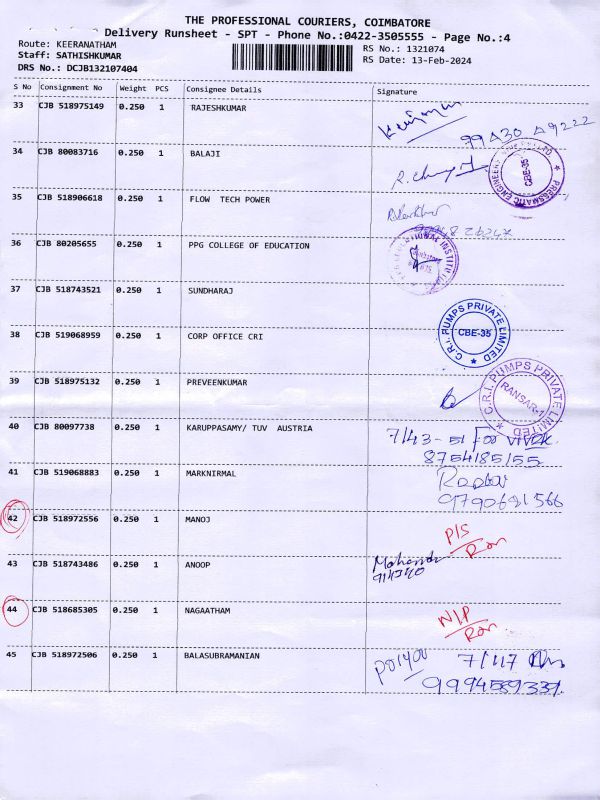 THE PROFESSIONAL COURIERS, COIMBATORE
Delivery Runsheet - SPT - Phone No.:0422-3505555 - Page No.:4
Route: KEERANATHAM
Staff: SATHISHKUMAR
DRS No.: DCJB132107404
RS No.: 1321074
RS Date: 13-Feb-2024
S No Consignment No Weight PCS Consignee Details Signature
33 CJB 518975149 0.250 1 RAJESHKUMAR
34 CJB 80083716 0.250 1 BALAJI
PRESSMATIC ENGINEERS CBE-35
35 CJB 518906618 0.250 1 FLOW TECH POWER
36 CJB 80205655 0.250 1 PPG COLLEGE OF EDUCATION
37 CJB 518743521 0.250 1 SUNDHARAJ
38 CJB 519068959 0.250 1 CORP OFFICE CRI
C.R.I. PUMPS PRIVATE LIMITED CBE-35
39 CJB 518975132 0.250 1 PREVEENKUMAR
C.R.I. PUMPS PRIVATE LIMITED RANSAR-1
40 CJB 80097738 0.250 1 KARUPPASAMY/ TUV AUSTRIA
8754185155
41 CJB 519068883 0.250 1 MARKNIRMAL
42 CJB 518972556 0.250 1 MANOJ
43 CJB 518743486 0.250 1 ANOOP
44 CJB 518685305 0.250 1 NAGAATHAM
45 CJB 518972506 0.250 1 BALASUBRAMANIAN
7/117